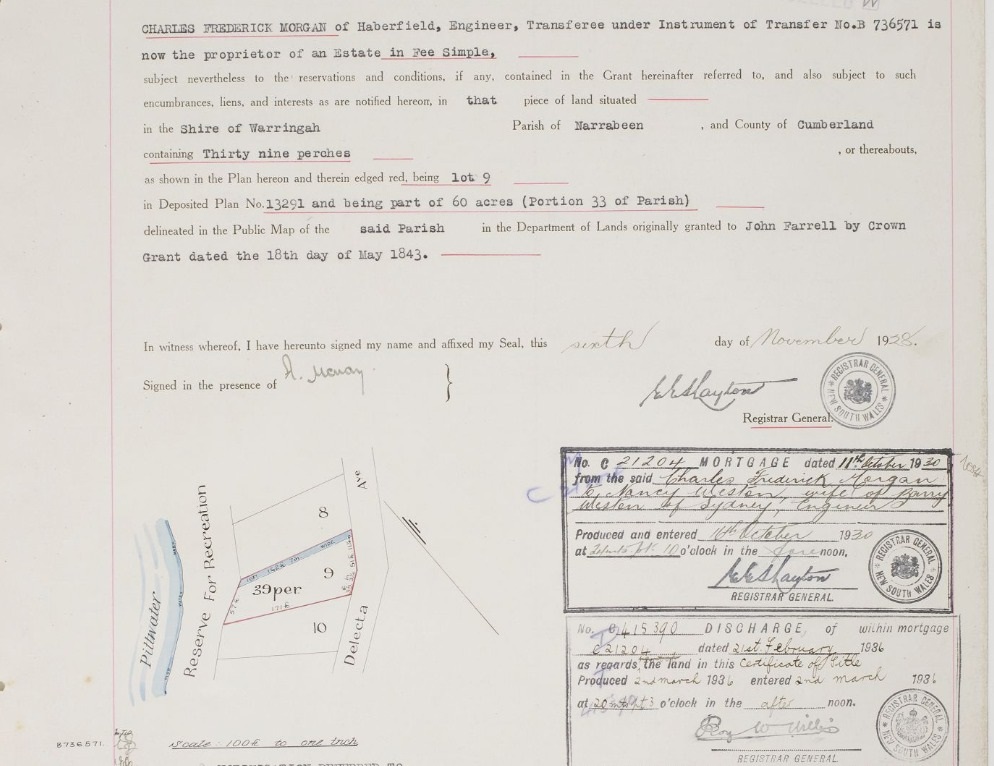 CHARLES FREDERICK MORGAN of Haberfield, Engineer, Transferee under Instrument of Transfer No.B 736571 is
now the proprietor of an Estate in Fee Simple,
subject nevertheless to the reservations and conditions, if any, contained in the Grant hereinafter referred to, and also subject to such
encumbrances, liens, and interests as are notified hereon, in that piece of land situated
in the Shire of Warringah Parish of Narrabeen , and County of Cumberland
containing Thirty nine perches , or thereabouts,
as shown in the Plan hereon and therein edged red, being lot 9
in Deposited Plan No. 13291 and being part of 60 acres (Portion 33 of Parish)
delineated in the Public Map of the said Parish in the Department of Lands originally granted to John Farrell by Crown
Grant dated the 18th day of May 1843.
In witness whereof, I have hereunto signed my name and affixed my Seal, this sixth day of November 1928.
Signed in the presence of
Registrar General.
REGISTRAR GENERAL
NEW SOUTH WALES
Pittwater
Reserve For Recreation
8
9
39per
10
Delecta Ave
Scale 100ft to one inch
B736571.
No. C 21204 MORTGAGE dated 11th October 1930
from the said Charles Frederick Morgan
to Nancy Weston, wife of Harry
Weston of Sydney, Engineer
Produced and entered 16th October 1930
at o'clock in the fore noon.
REGISTRAR GENERAL.
REGISTRAR GENERAL
NEW SOUTH WALES
No. C415390 DISCHARGE of within mortgage
C21204 dated 21st February 1936
as regards the land in this Certificate of Title
Produced 2nd March 1936 entered 2nd March 1936
at o'clock in the after noon.
REGISTRAR GENERAL.